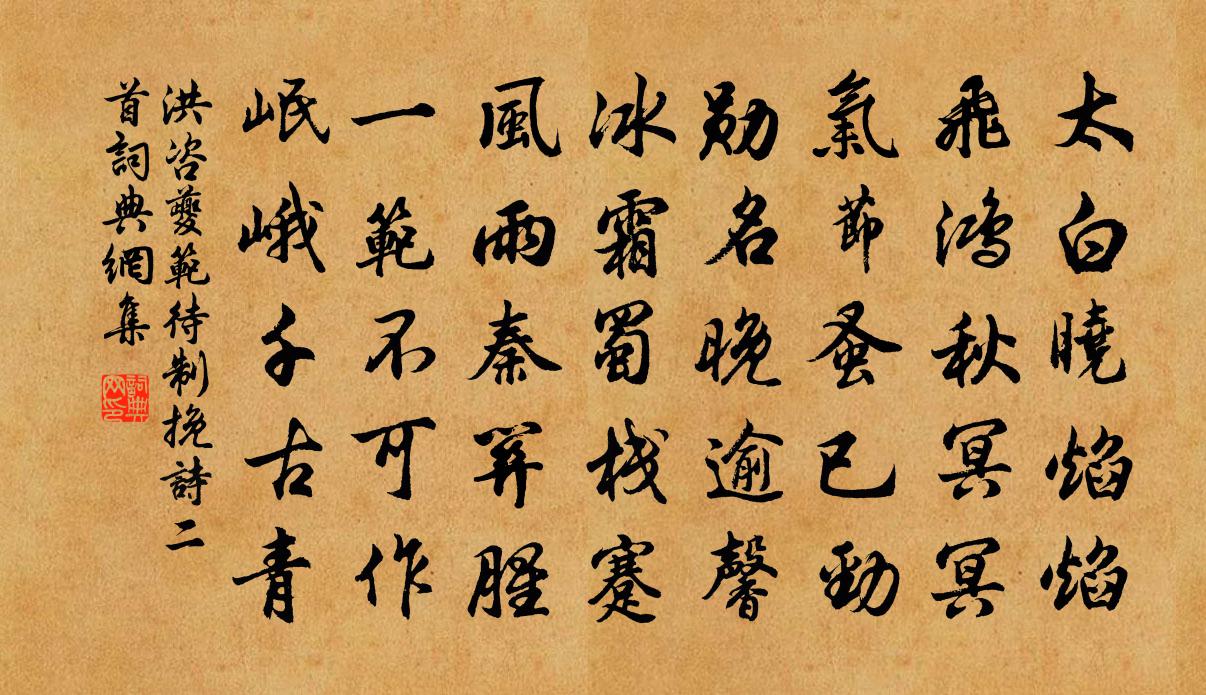 太白曉焰焰
飛鴻秋冥冥
氣節蚤已勁
勛名晚逾馨
冰霜蜀棧蹇
風雨秦筭腥
一範不可作
岷峨千古青
洪咨夔範待制挽詩二
首詞典網集
詞典
网印